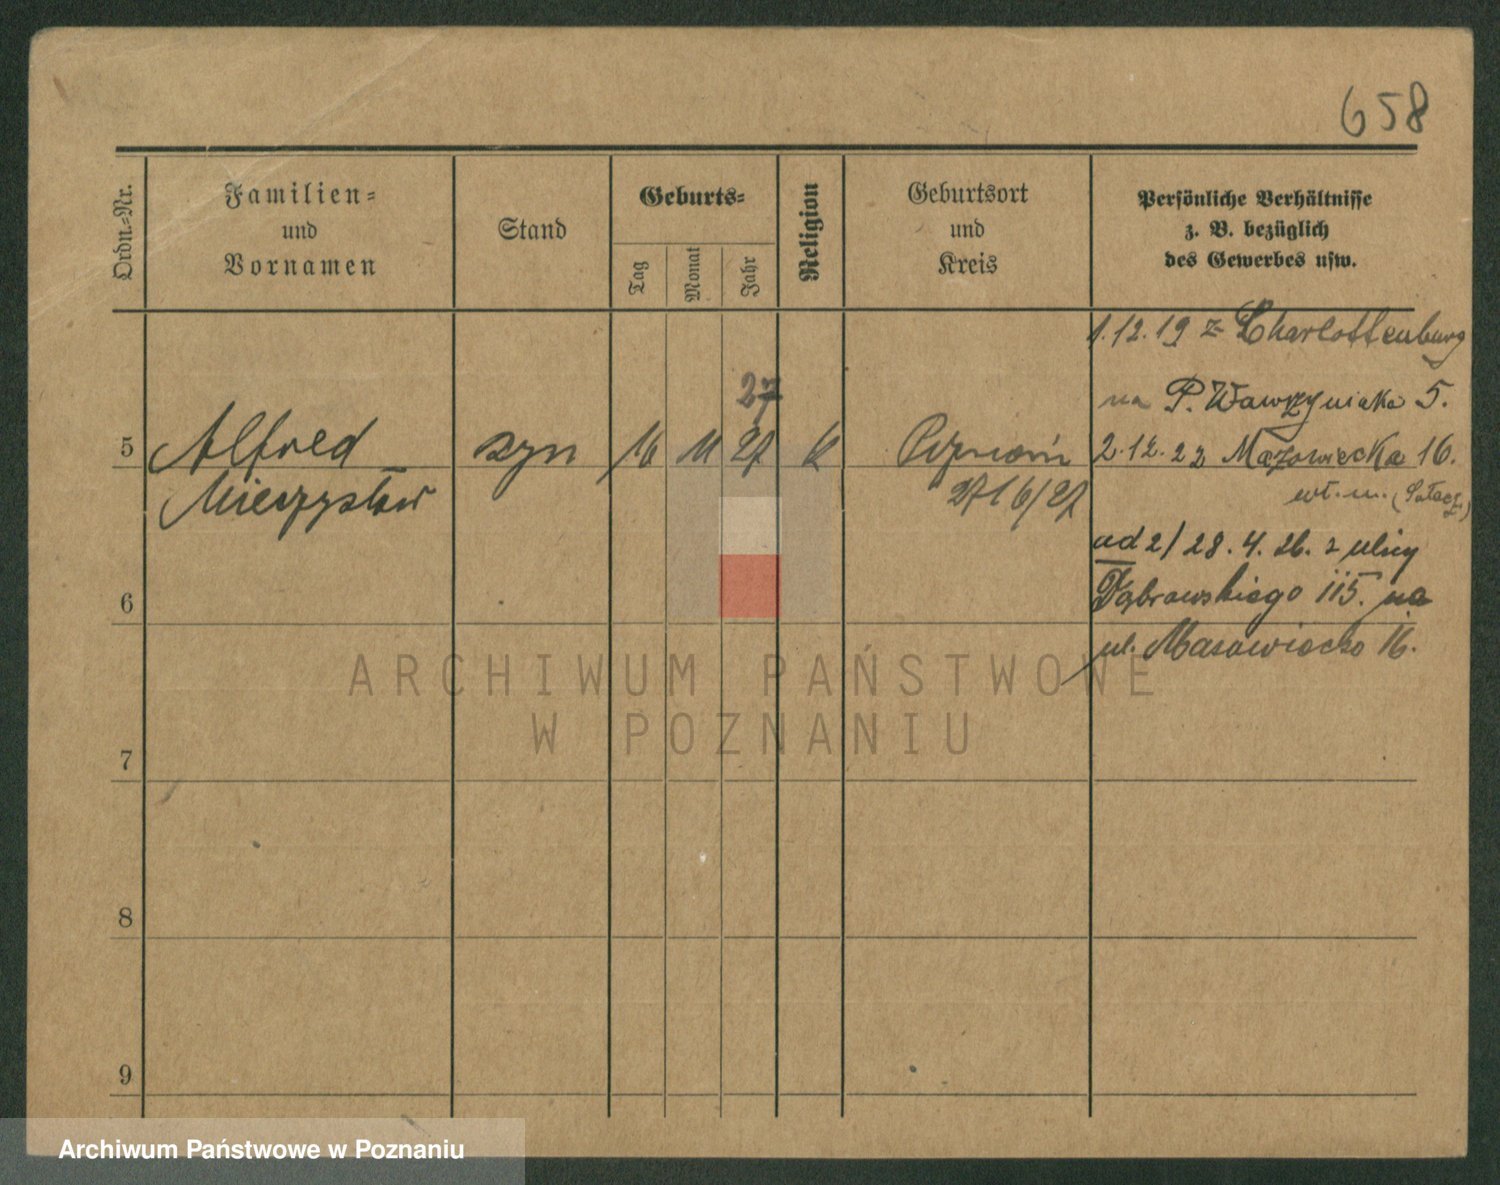 658
Ordn.-Nr.
Familien-
und
Vornamen
Stand
Geburts-
Tag
Monat
Jahr
Religion
Geburtsort
und
Kreis
Persönliche Verhältnisse
z. B. bezüglich
des Gewerbes usw.
1.12.19 z Charlottenburg
na P. Wawrzyniaka 5.
27
5 Alfred syn 16 11 27 k Poznań 2.12.22 Mazowiecka 16.
Mieczysław 2716/27
wł. m. (Sołacz)
ad 2/ 28. 4. 26. z ulicy
Dąbrowskiego 115. na
6
ul. Mazowiecką 16.
ARCHIWUM PAŃSTWOWE
W POZNANIU
7
8
9
Archiwum Państwowe w Poznaniu